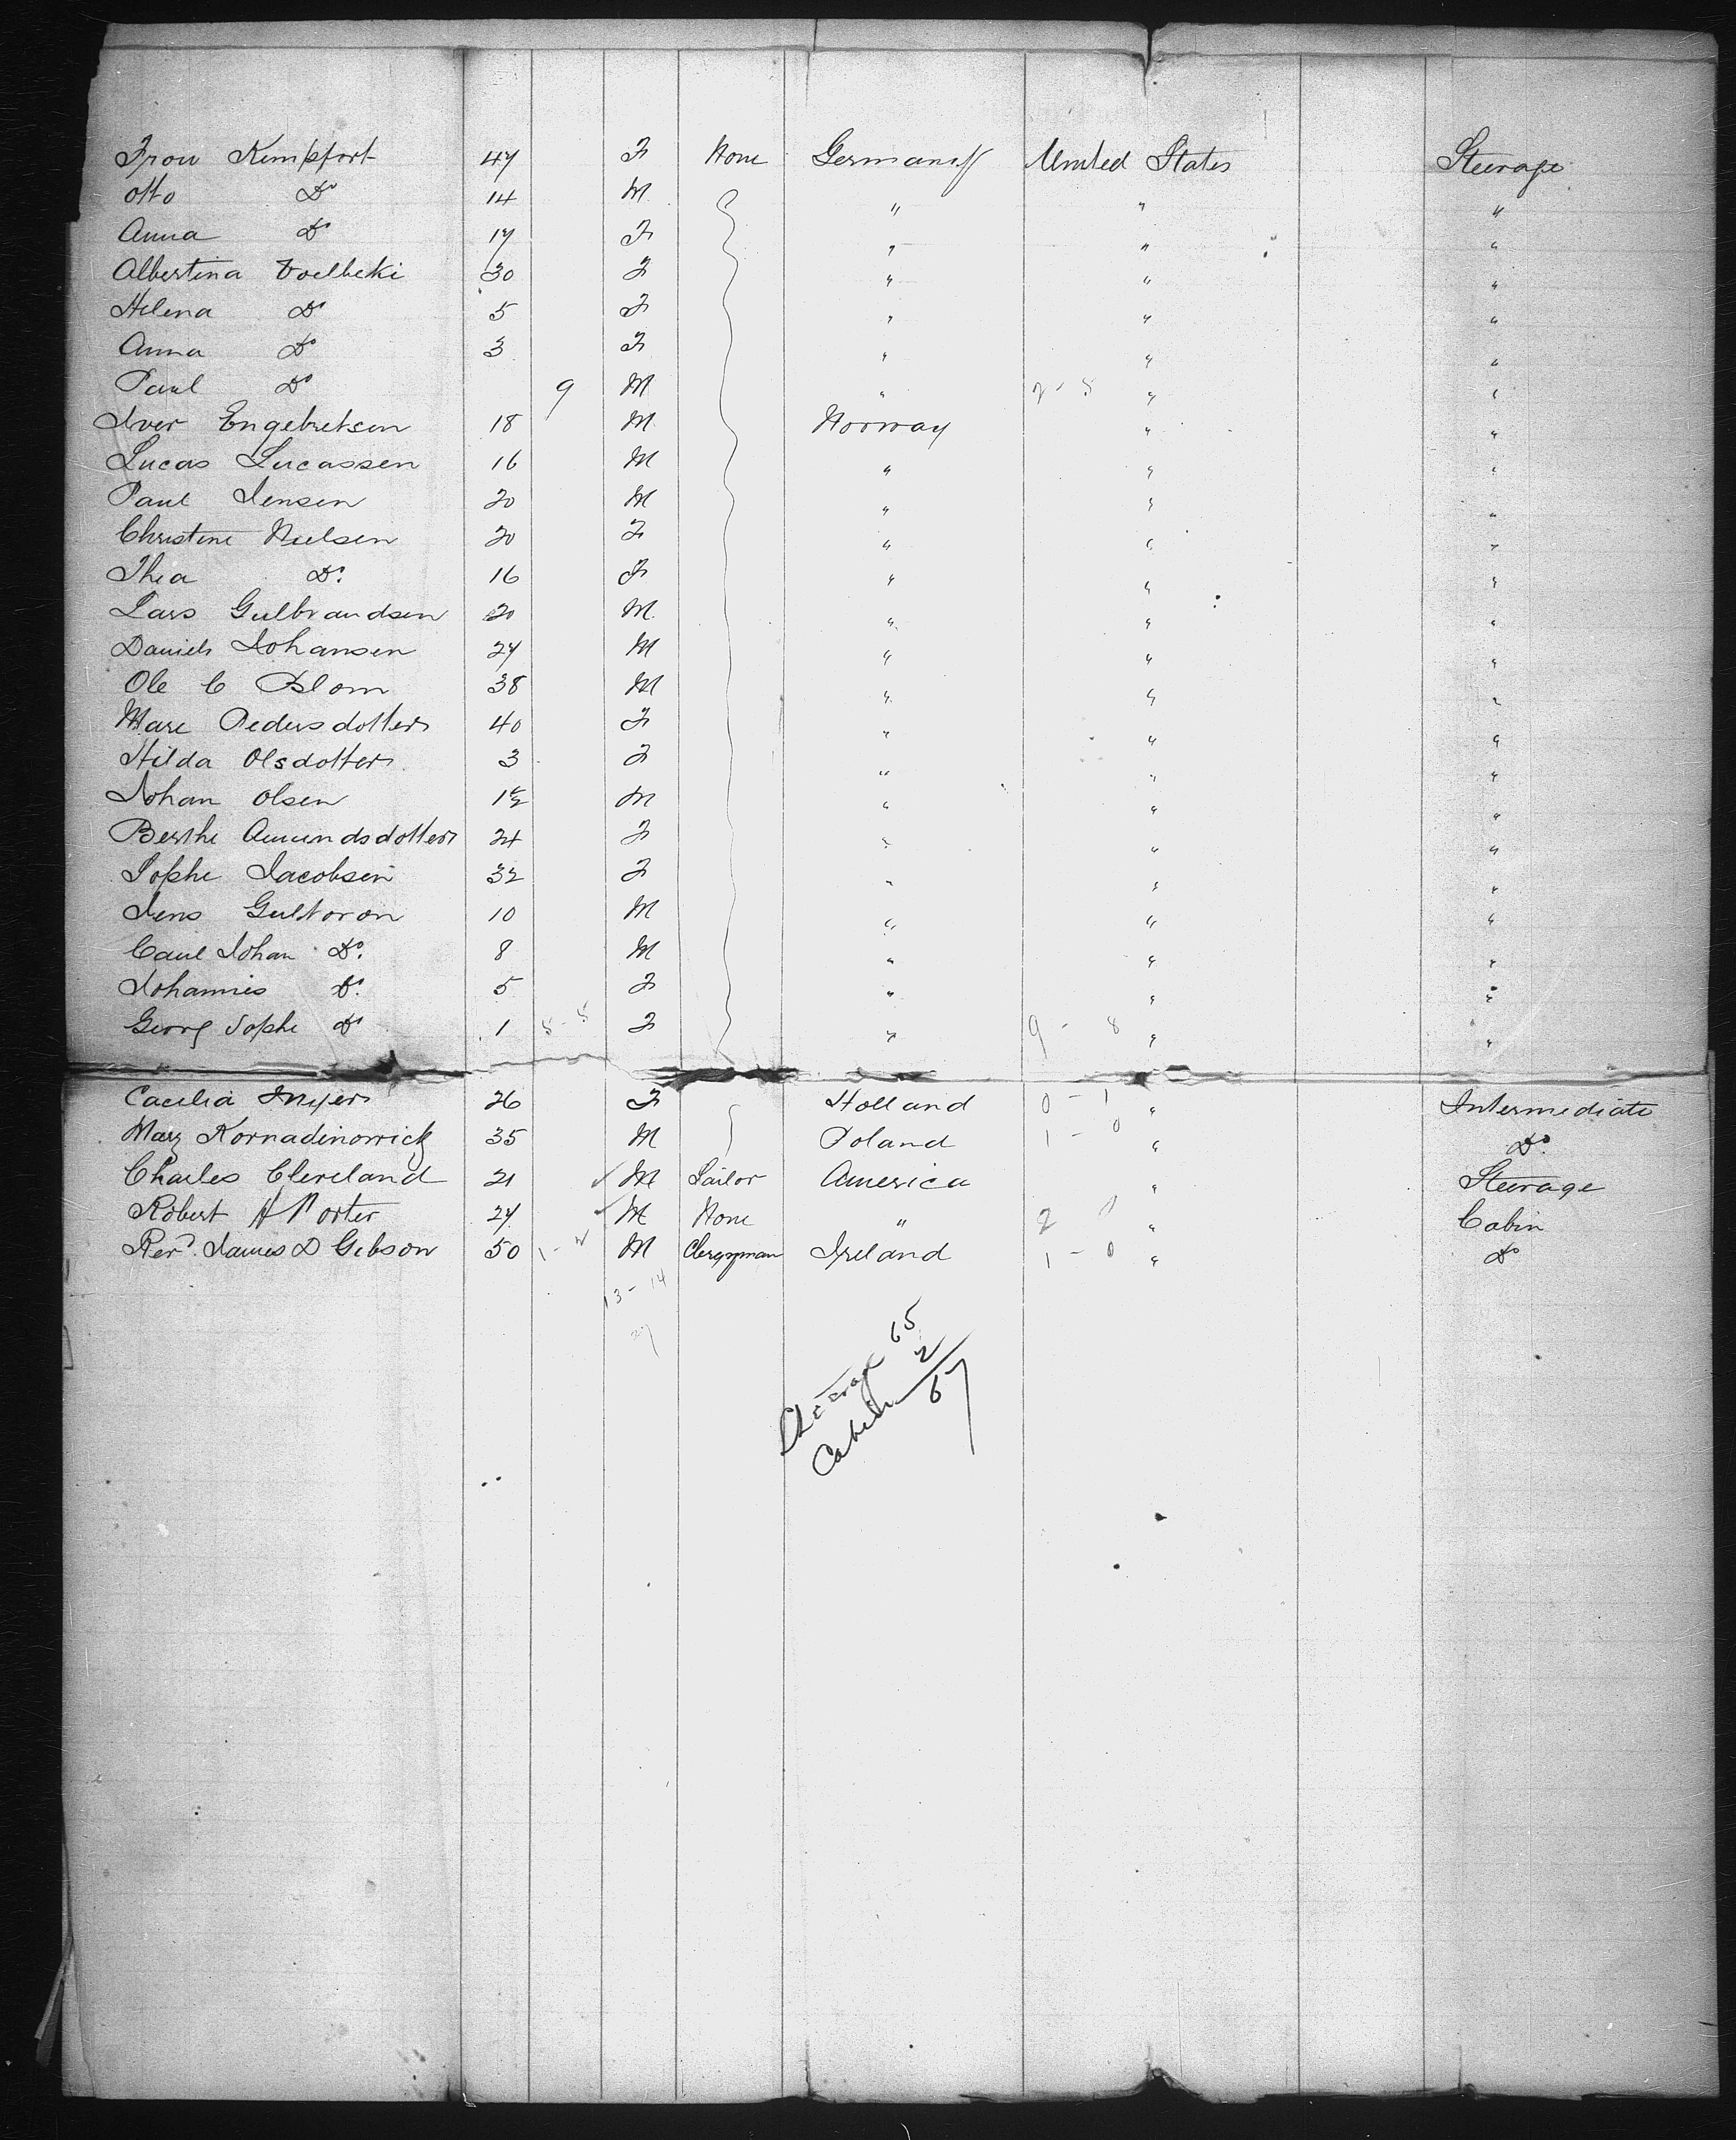 Frou Kempfort 47 F None Germany United States Steerage
Otto Do 14 M " " "
Anna Do 17 F " " "
Albertina Voelbeki 30 F " " "
Helena Do 5 F " " "
Anna Do 3 F " " "
Paul Do 9 M " 2-5 " "
Iver Engebretsen 18 M Norway " "
Lucas Lucassen 16 M " " "
Paul Jensen 20 M " " "
Christine Nielsen 20 F " " "
Thea Do. 16 F " " "
Lars Gulbrandsen 20 M. " " "
Daniels Johansen 27 M " " "
Ole C Blom 38 M " " "
Mare Pedersdotter 40 F " " "
Hilda Olsdotter 3 F " " "
Johan Olsen 1½ M " " "
Berthe Amundsdotter 24 F " " "
Sophe Jacobsen 32 F " " "
Jens Gultoron 10 M " " "
Carl Johan Do. 8 M " " "
Johannes Do. 5 F " " "
Georg Sophe Do 1 5-5 F " 9-8 " "
Caecilia Meyer 26 F Holland 0-1 " Intermediate
Mary Kornadinowick 35 M Poland 1-0 " Do.
Charles Cleveland 21 M Sailor America " Steerage
Robert H Porter 27 M None " 2 0 " Cabin
Revd. James D Gibson 50 1-2 M Clergyman Ireland 1-0 " Do
13-14
27
Steerage 65
Cabin 2
67